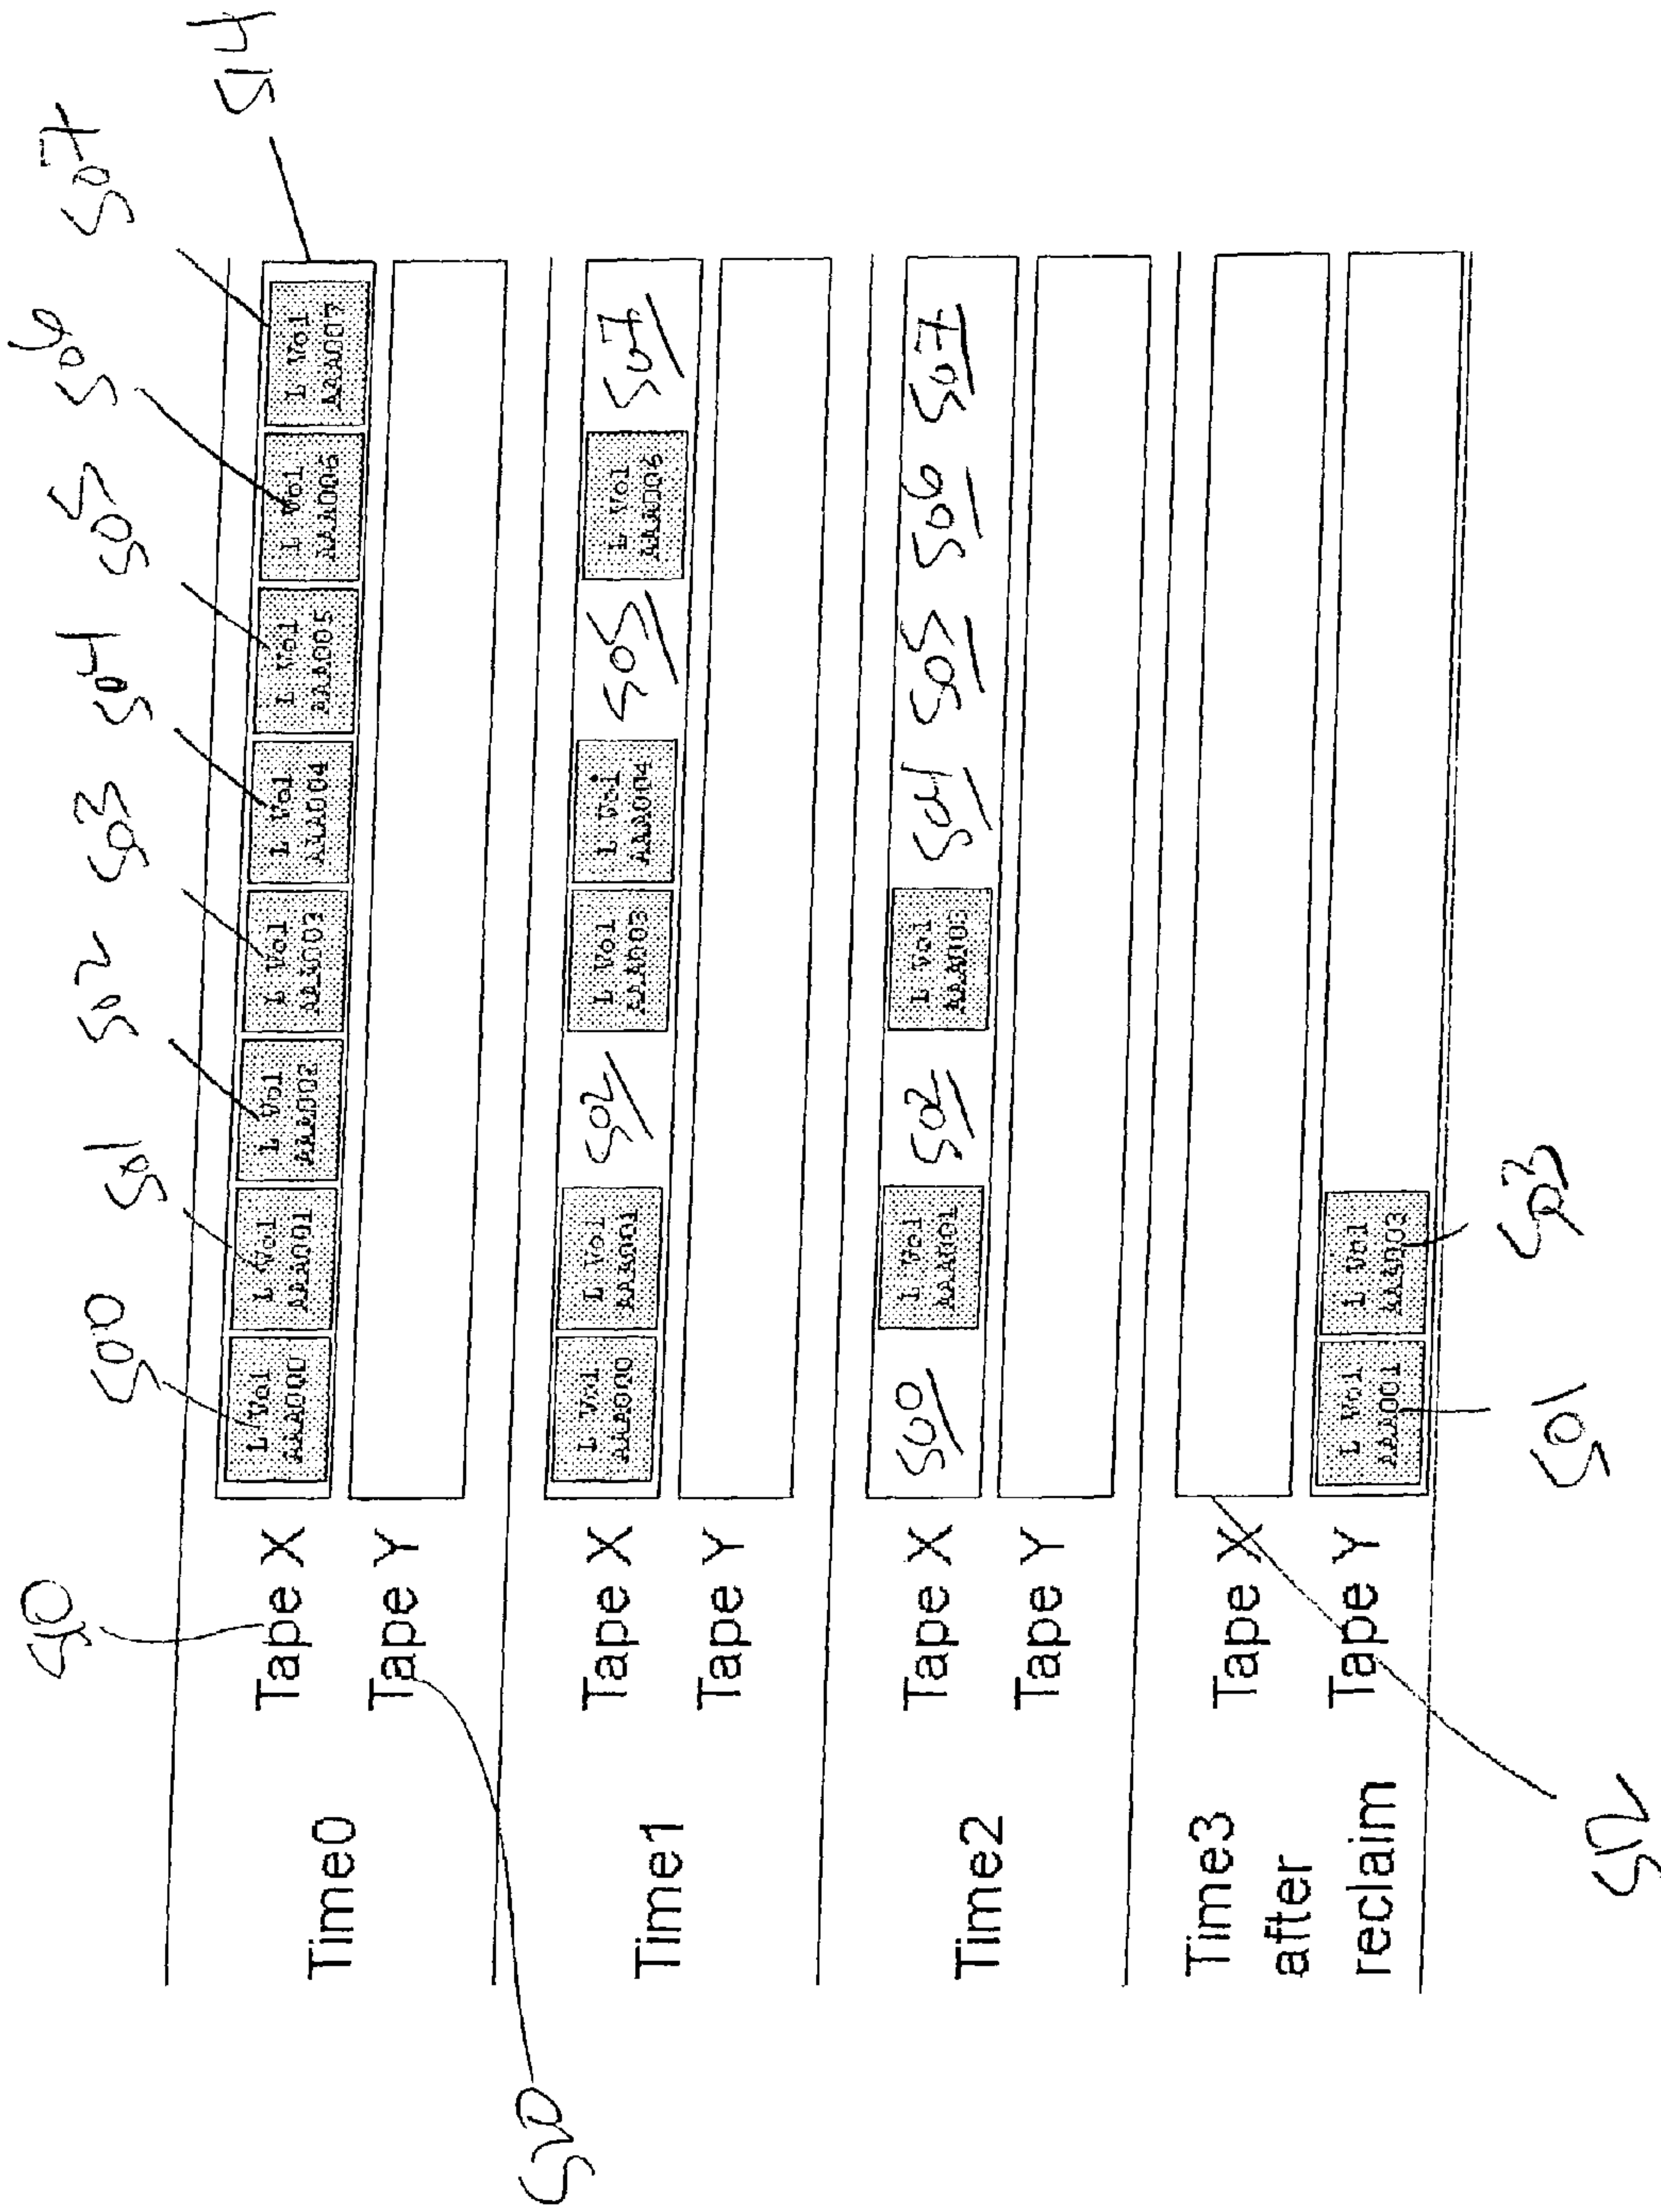 510
500 501 502 503 504 505 506 507
514
Time0
Tape X
L Vol AAA000
L Vol AAA001
L Vol AAA002
L Vol AAA003
L Vol AAA004
L Vol AAA005
L Vol AAA006
L Vol AAA007
Tape Y
520
Time1
Tape X
L Vol AAA000
L Vol AAA001
502
L Vol AAA003
L Vol AAA004
505
L Vol AAA006
507
Tape Y
Time2
Tape X
500
L Vol AAA001
502
L Vol AAA003
504
505
506
507
Tape Y
Time3
after
reclaim
Tape X
Tape Y
L Vol AAA001
L Vol AAA003
512
501
503